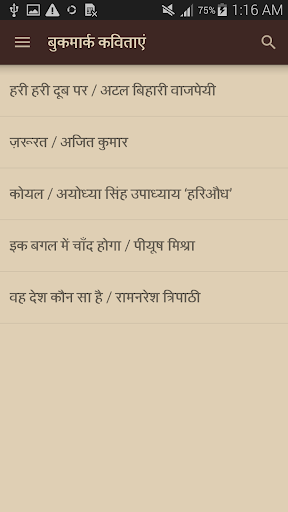 75% 1:16 AM
बुकमार्क कविताएं
हरी हरी दूब पर / अटल बिहारी वाजपेयी
ज़रूरत / अजित कुमार
कोयल / अयोध्या सिंह उपाध्याय ‘हरिऔध’
इक बगल में चाँद होगा / पीयूष मिश्रा
वह देश कौन सा है / रामनरेश त्रिपाठी